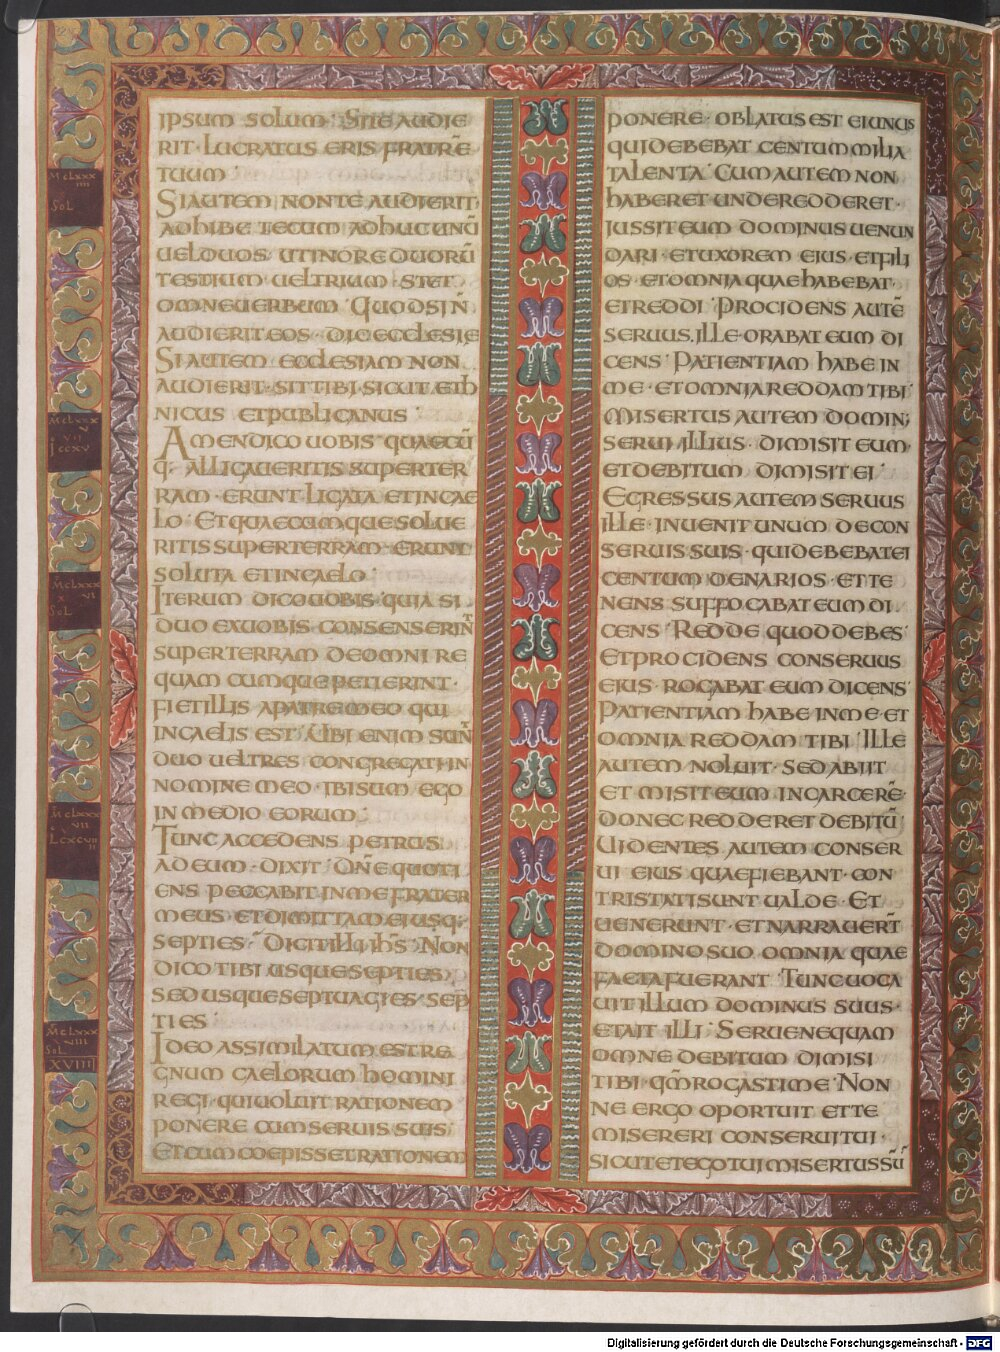 IPSUM SOLUM· SITE AUDIE
RIT· LUCRATUS ERIS FRATRĒ
TUUM·
SIAUTEM NONTE AUDIERIT·
ADHIBE TECUM ADHUCUNŪ
UELDUOS· UTINORE DUORŪ
TESTIUM UELTRIUM· STET
OMNEUERBUM· QUODSIN̄
AUDIERITEOS· DICECCLESIE
SIAUTEM ECCLESIAM NON
AUDIERIT· SITTIBI, SICUT ETH
NICUS ETPUBLICANUS·
AMENDICO UOBIS· QUAECŪ
Q· ALLIGAUERITIS SUPERTER
RAM· ERUNT LIGATA ETINCAE
LO· ETQUAECUMQUESOLUE
RITISSUPERTERRAM· ERUNT
SOLUTA ETINCAELO·
ITERUM DICOUOBIS· QUIA SI
DUO EXUOBIS CONSENSERIN̄
SUPERTERRAM DEOMNI RE
QUAM CUMQUEPETIERINT·
FIETILLIS APATREMEO QUI
INCAELIS EST· UBI ENIM SUN̄
DUO UELTRES CONGREGATI IN
NOMINE MEO· IBISUM EGO
INMEDIO EORUM·
TUNC ACCEDENS PETRUS
ADEUM· DIXIT· DN̄E QUOTI
ENS PECCABIT INME FRATER
MEUS· ETDIMITTAM EIUSQ;
SEPTIES· DICITILLI IH̄S· NON
DICO TIBI USQUESEPTIES·
SEDUSQUESEPTUAGIES SEP
TIES·
IDEO ASSIMILATUM ESTRE
GNUM CAELORUM HOMINI
REGI· QUIUOLUIT RATIONEM
PONERE CUMSERUIS SUIS·
ETCUMCOEPISSETRATIONEM
PONERE· OBLATUS EST EIUNUS
QUIDEBEBAT CENTUMMILIA
TALENTA· CUMAUTEM NON
HABERET UNDEREDDERET·
JUSSIT EUM DOMINUS UENUN
DARI· ETUXOREM EIUS· ETFILI
OS· ETOMNIAQUAEHABEBAT·
ETREDDI· PROCIDENS AUTĒ
SERUUS ILLE· ORABAT EUM DI
CENS· PATIENTIAM HABE IN
ME· ETOMNIAREDDAMTIBI·
MISERTUS AUTEM DOMIN;
SERUI ILLIUS· DIMISIT EUM·
ETDEBITUM DIMISIT EI·
EGRESSUS AUTEM SERUUS
ILLE· INUENIT UNUM DECON
SERUIS SUIS· QUIDEBEBATEI
CENTUM DENARIOS· ETTE
NENS SUFFOCABAT EUM DI
CENS· REDDE QUODDEBES·
ETPROCIDENS CONSERUUS
EIUS· ROGABAT EUM DICENS·
PATIENTIAM HABE INME· ET
OMNIA REDDAM TIBI· ILLE
AUTEM NOLUIT· SED ABIIT
ET MISIT EUM INCARCERĒ
DONEC REDDERET DEBITŪ·
UIDENTES AUTEM CONSER
UI EIUS QUAEFIEBANT· CON
TRISTATISUNT UALDE· ET
UENERUNT· ETNARRAUERT̄
DOMINO SUO OMNIA QUAE
FACTAFUERANT· TUNCUOCA
UIT ILLUM DOMINUS SUUS·
ETAIT ILLI· SERUENEQUAM
OMNE DEBITUM DIMISI
TIBI· QM̄ ROGASTIME· NON
NE ERGO OPORTUIT ETTE
MISERERI CONSERUI TUI·
SICUTETEGOTUI MISERTUSSŪ
MCLXXX
IIII
SOL
MCLXXX
V
VII
CCXV
MCLXXX
X VI
SOL
MCLXXX
VII
LCXCVII
MCLXXX
VIII
SOL
XVIIII
Digitalisierung gefördert durch die Deutsche Forschungsgemeinschaft - DFG